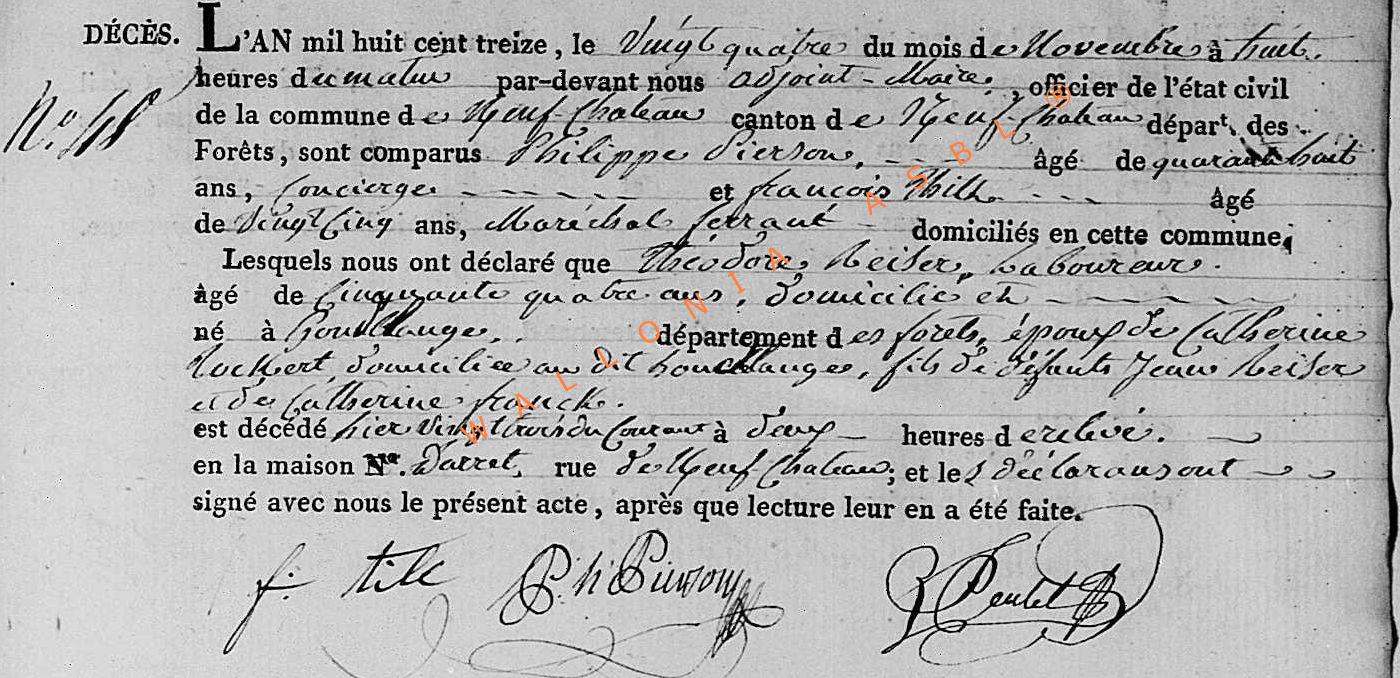 DÉCÈS. L'AN mil huit cent treize, le Vingt quatre du mois de Novembre à huit
heures du matin par-devant nous adjoint-Maire, officier de l'état civil
de la commune de Neuf-Chateau canton de Neuf-Chateau départ. des
Forêts, sont comparus Philippe Pierson, âgé de quarante huit
ans, Concierge et françois Thill âgé
de Vingt Cinq ans, Maréchal ferrant domiciliés en cette commune;
Lesquels nous ont déclaré que Théodore Reiser, Laboureur.
âgé de Cinquante quatre ans, domicilié et
né à département des forets, époux de Catherine
domiciliée au dit fils de défunts Jean Reiser
et de Catherine franck.
est décédé hier Vingt trois du Courant à deux heures de relevé.
en la maison Nº. D'arret, rue de Neuf Chateau; et les déclarans ont
signé avec nous le présent acte, après que lecture leur en a été faite.
f: till Ph Pierson
Nº 48
WALLONIA ASBL ©